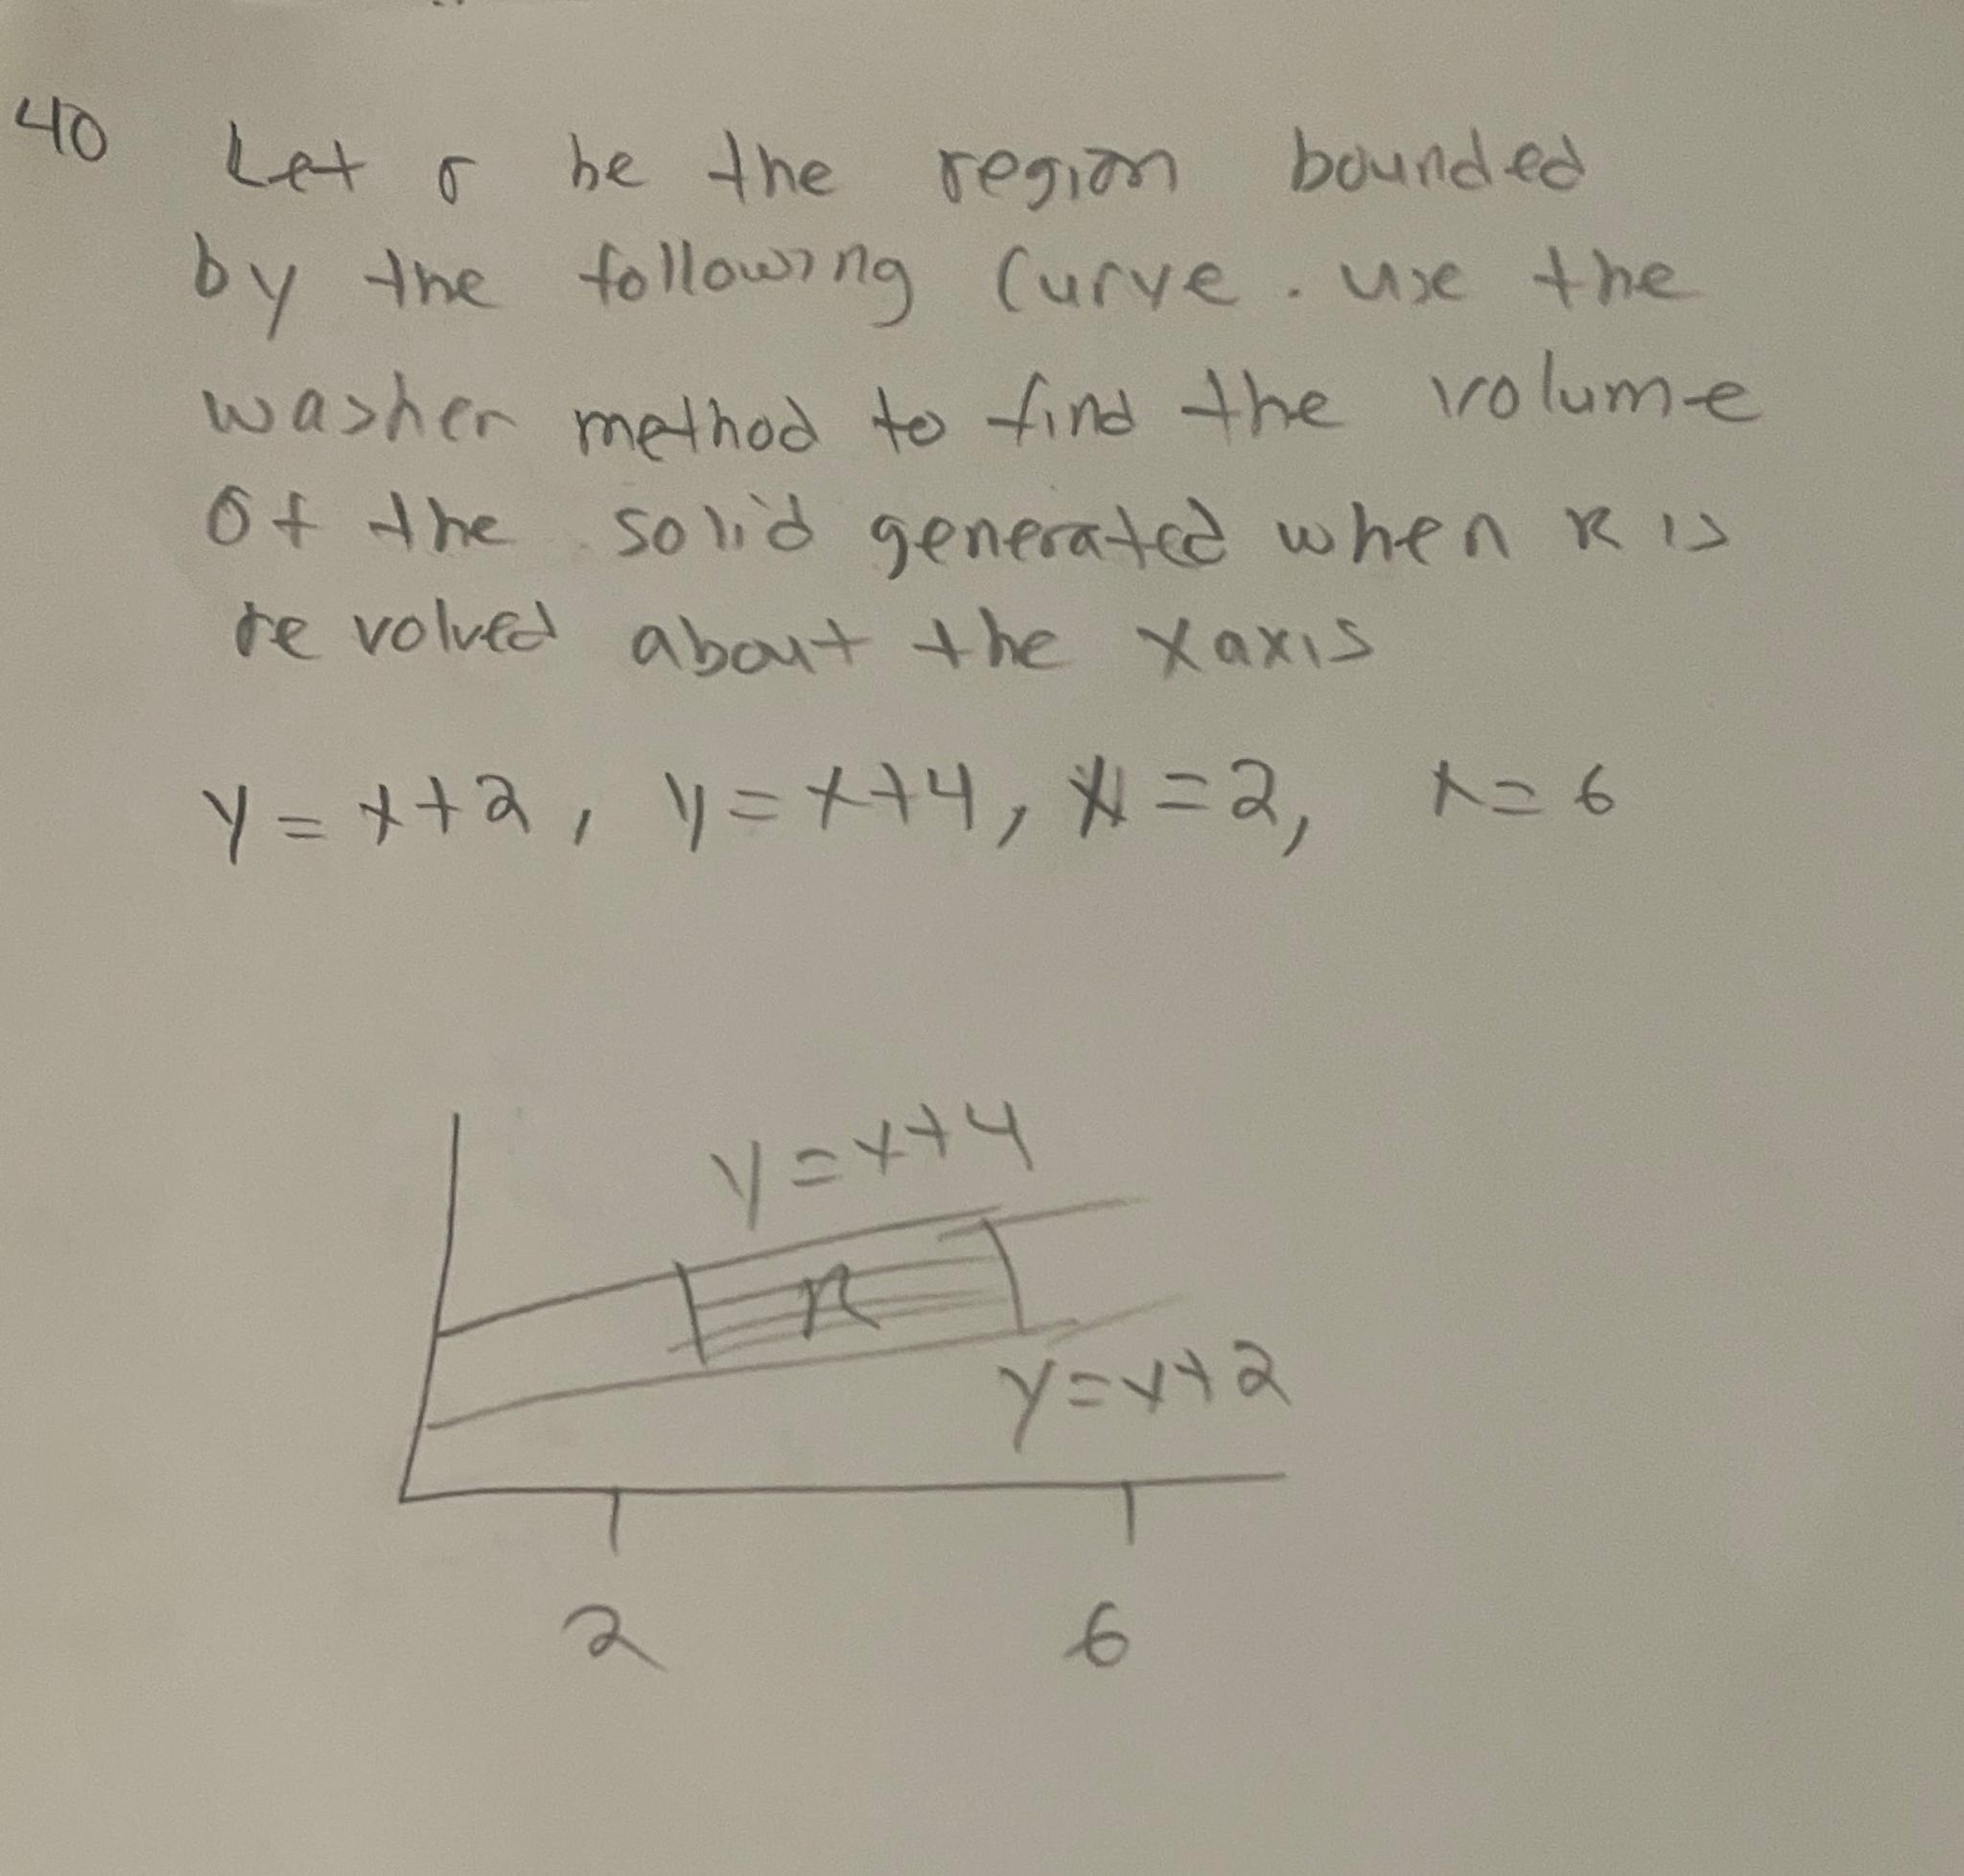 40 Let r be the region bounded
by the following curve. use the
washer method to find the volume
of the solid generated when R is
revolved about the x axis
y = x+2, y = x+4, x = 2, x = 6
y = x+4
R
y = x+2
2 6